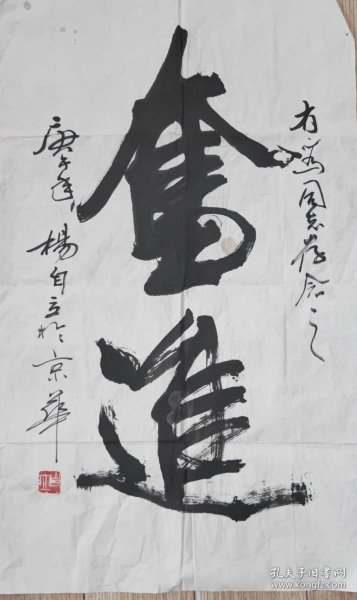 有同志存念之
奮進
庚午年 楊自立於京華
孔夫子旧书网
www.kongfz.com